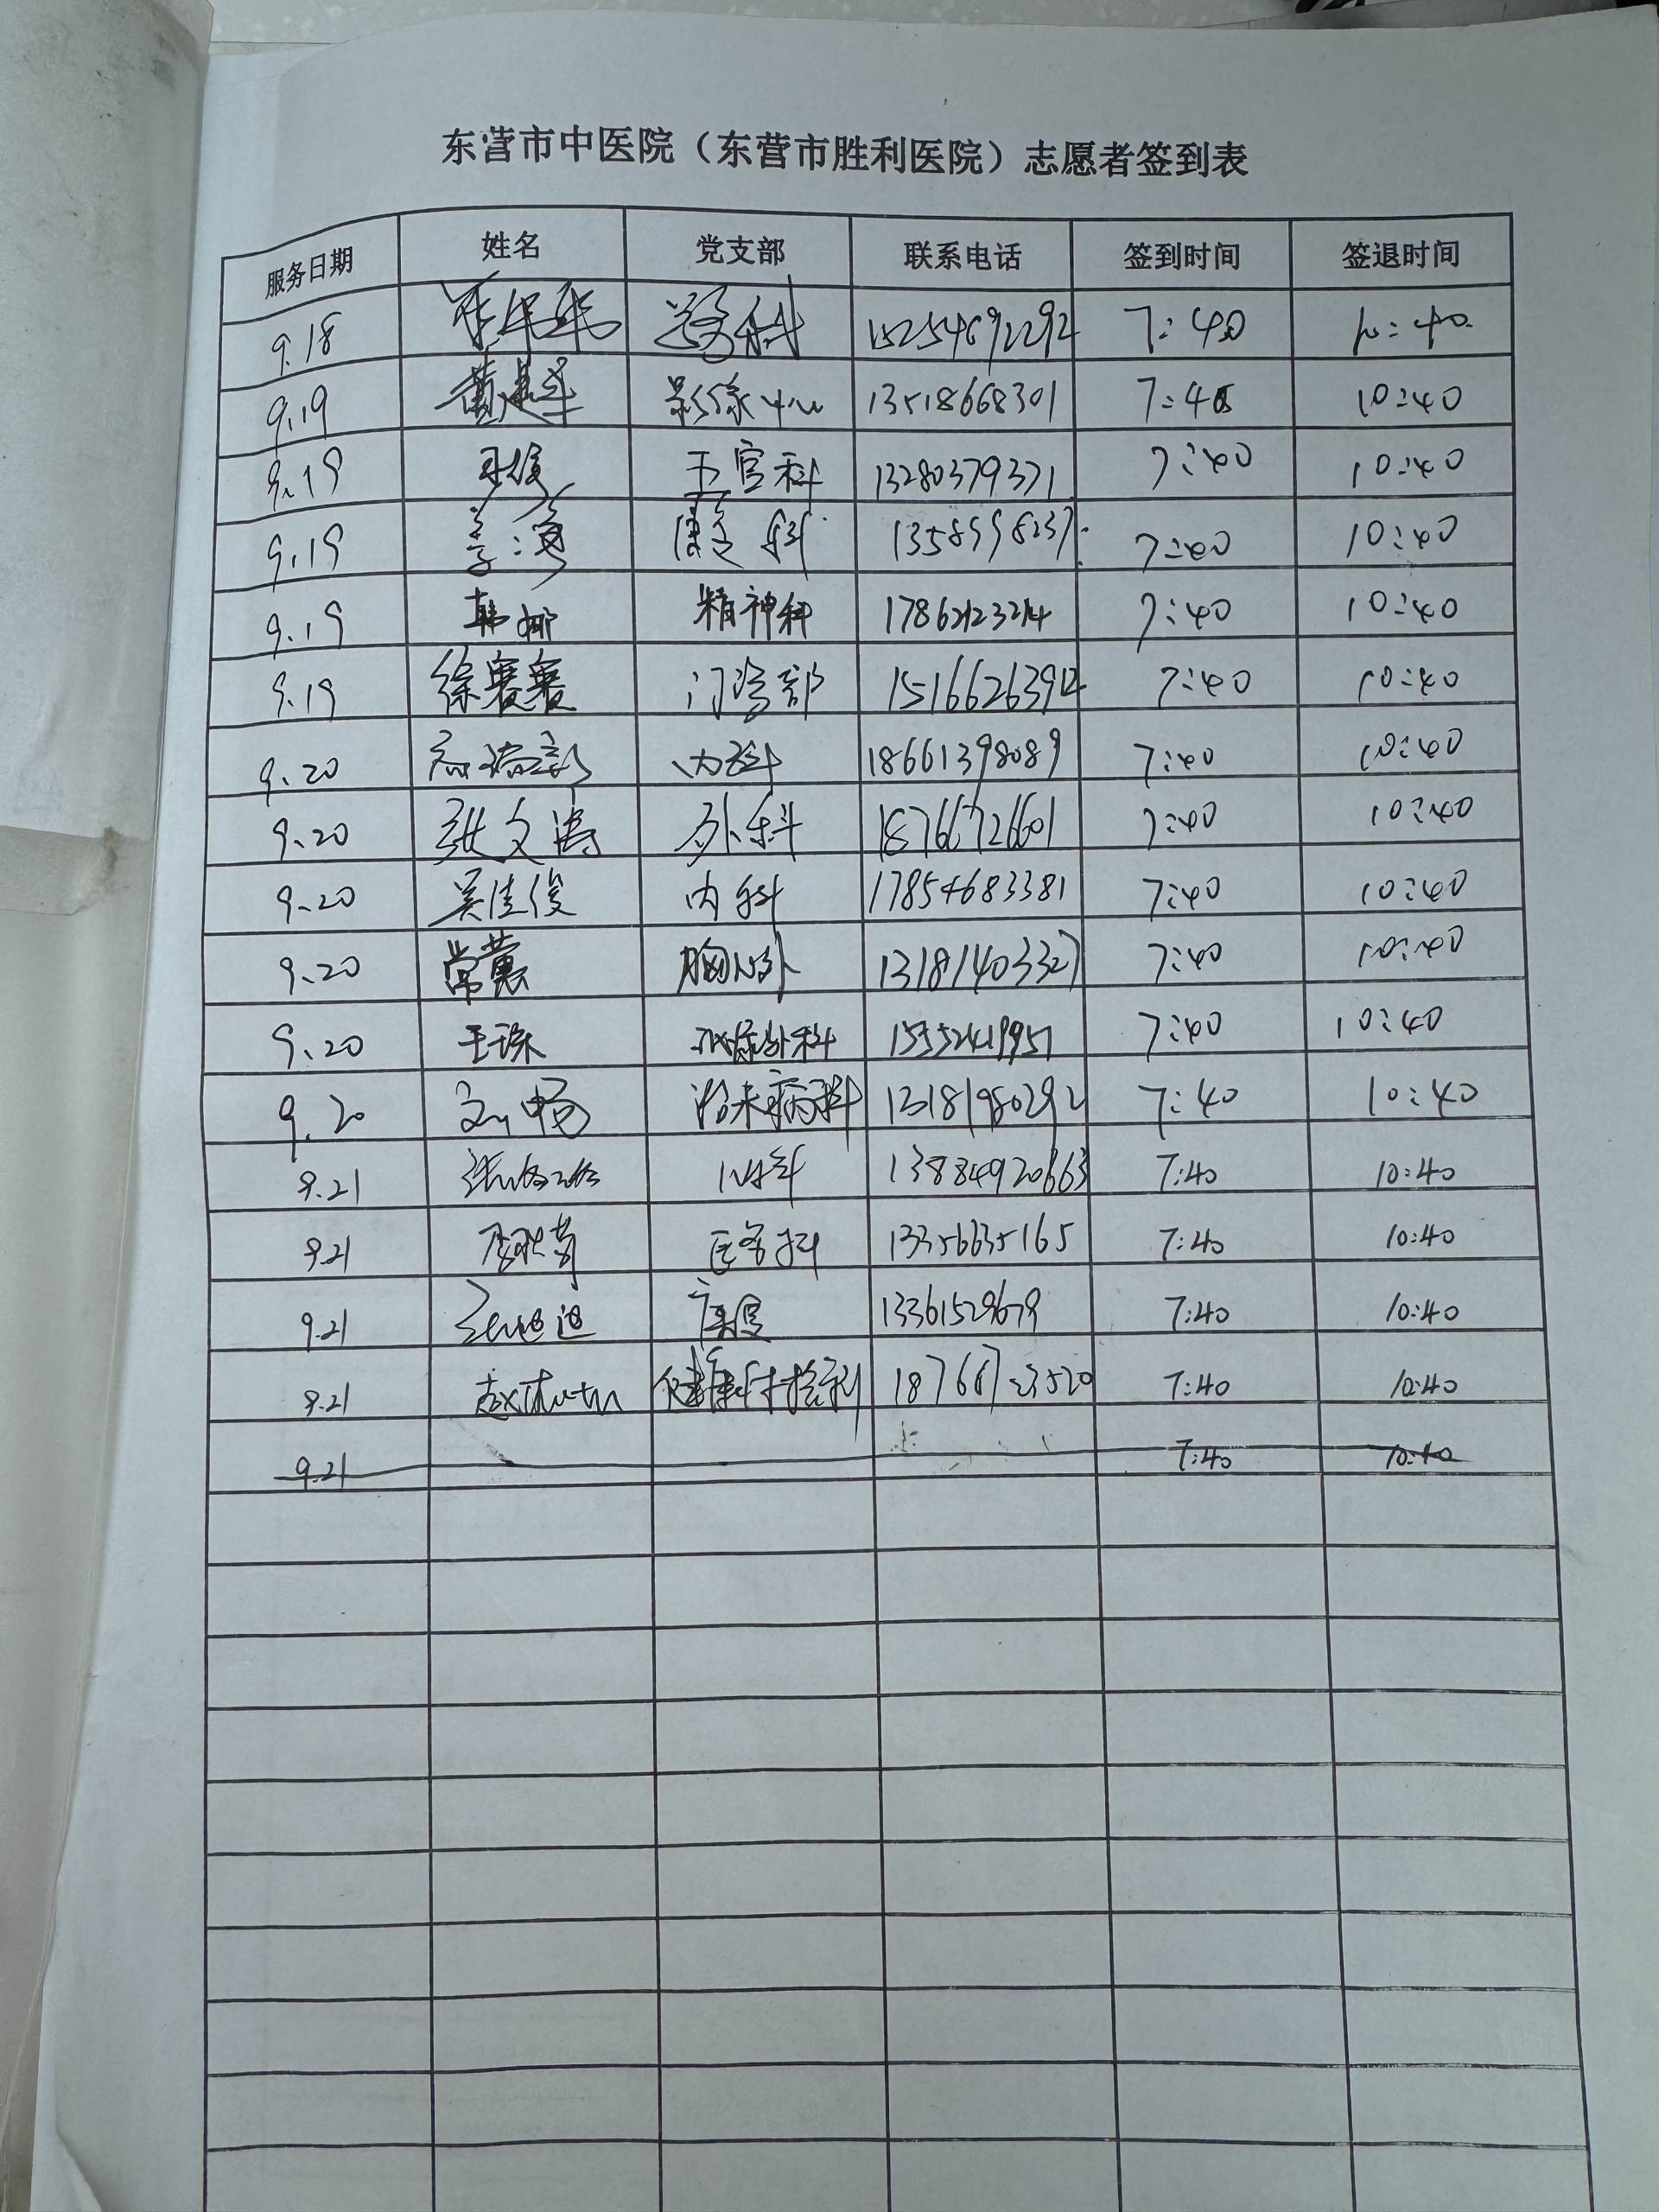 东营市中医院（东营市胜利医院）志愿者签到表
服务日期 姓名 党支部 联系电话 签到时间 签退时间
9.18 15254692292 7:40 10:40
9.19 影像中心 13518668301 7:40 10:40
9.19 五官科 13280379371 7:40 10:40
9.19 姜海 康复科 7:40 10:40
9.19 韩娜 精神科 7:40 10:40
9.19 徐赛赛 门诊部 7:40 10:40
9.20 内科 18661398089 7:40 10:40
9.20 张文涛 外科 18766726601 7:40 10:40
9.20 吴佳俊 内科 17854683381 7:40 10:40
9.20 常蕙 胸心外 13181403327 7:40 10:40
9.20 王琛 泌尿外科 7:40 10:40
9.20 刘畅 治未病科 13181980292 7:40 10:40
9.21 7:40 10:40
9.21 医务科 13356635165 7:40 10:40
9.21 康复 13361529679 7:40 10:40
9.21 健康体检科 7:40 10:40
9.21 7:40 10:40